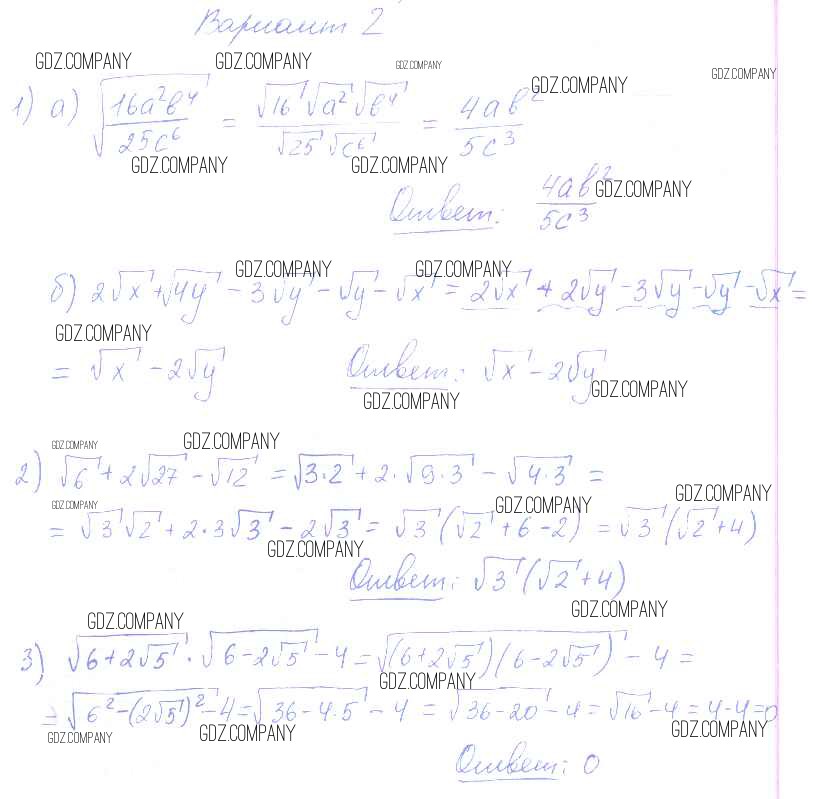 Вариант 2
GDZ.COMPANY GDZ.COMPANY GDZ.COMPANY GDZ.COMPANY GDZ.COMPANY
1) а) √(16a²b⁴/25c⁶) = √16 √a² √b⁴ / √25 √c⁶ = 4ab²/5c³
GDZ.COMPANY GDZ.COMPANY
Ответ: 4ab²/5c³
GDZ.COMPANY
GDZ.COMPANY GDZ.COMPANY
б) 2√x + √4y - 3√y - √y - √x = 2√x + 2√y - 3√y - √y - √x =
GDZ.COMPANY
= √x - 2√y Ответ: √x - 2√y
GDZ.COMPANY GDZ.COMPANY
GDZ.COMPANY GDZ.COMPANY
2) √6 + 2√27 - √12 = √3·2 + 2·√9·3 - √4·3 =
GDZ.COMPANY GDZ.COMPANY GDZ.COMPANY
= √3 √2 + 2·3√3 - 2√3 = √3 (√2 + 6 - 2) = √3 (√2 + 4)
GDZ.COMPANY
Ответ: √3 (√2 + 4)
GDZ.COMPANY GDZ.COMPANY
3) √(6+2√5) · √(6-2√5) - 4 = √((6+2√5)(6-2√5)) - 4 =
GDZ.COMPANY
= √(6² - (2√5)²) - 4 = √(36 - 4·5) - 4 = √(36-20) - 4 = √16 - 4 = 4 - 4 = 0
GDZ.COMPANY GDZ.COMPANY GDZ.COMPANY
Ответ: 0